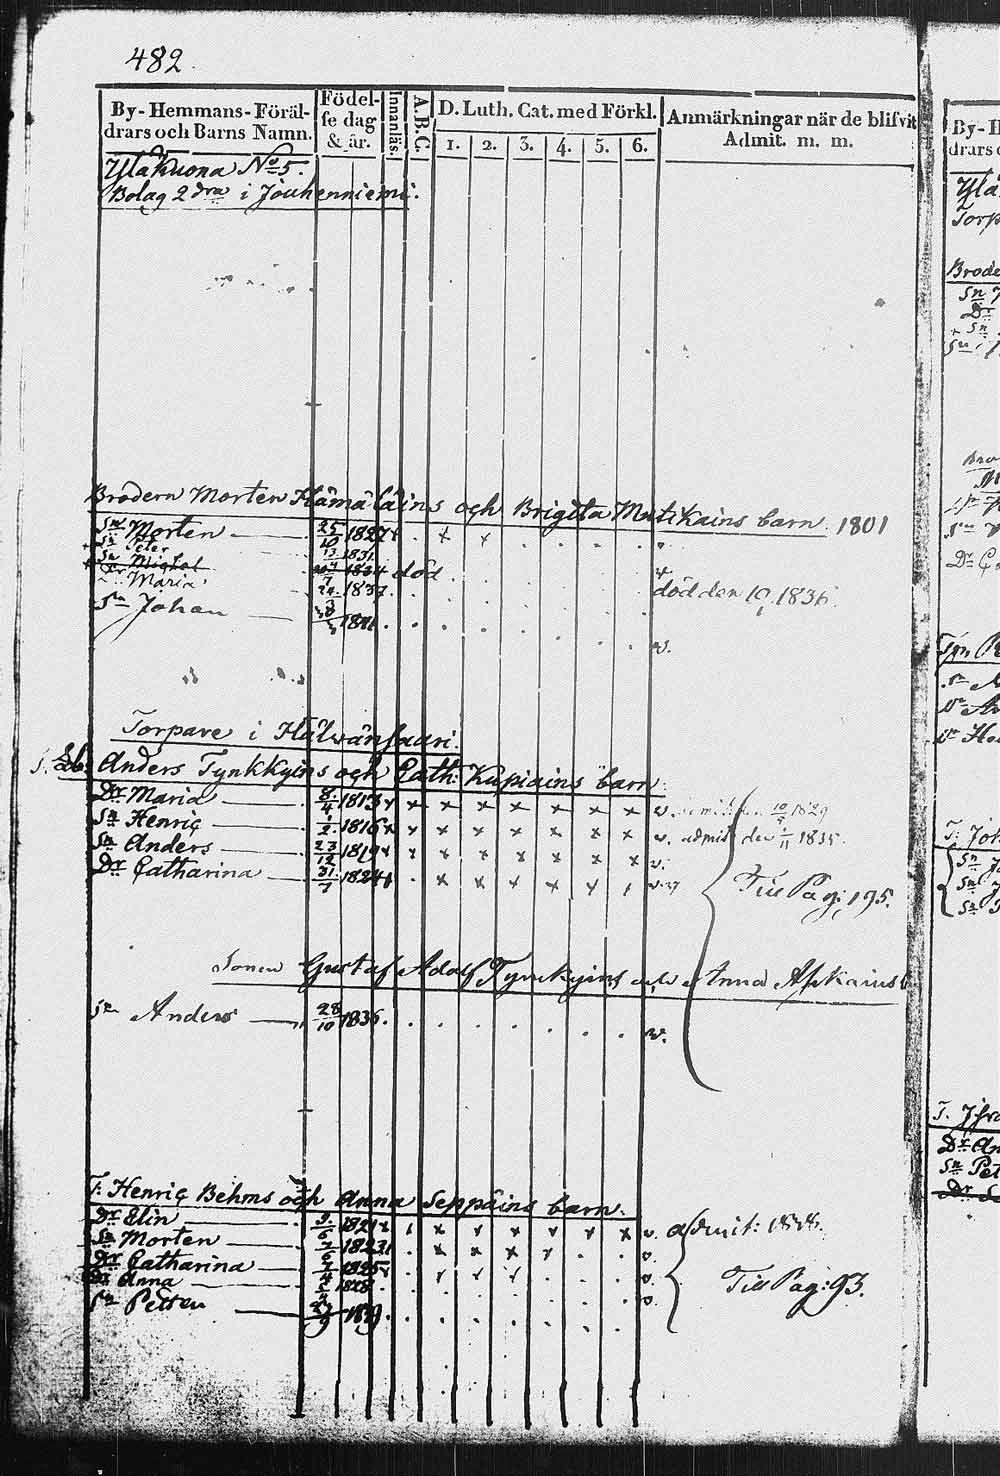 482.
By- Hemmans- Föräl-
drars och Barns Namn.
Födel-
se dag
& år.
Innanläs.
A.B.C.
D. Luth. Cat. med Förkl.
1. 2. 3. 4. 5. 6.
Anmärkningar när de blifvit
Admit. m. m.
Yläkuona No 5.
Bolag 2dra i Jouhenniemi.
Brodern Morten Hämäläins och Brigita Mutikains barn. 1801
Sn Morten 25/10 1827
Sn Peter 1831
Sn Michel 1834 död död den 10/ 1836.
Maria 24/ 1837
Sn Johan 1841
Torpare i Hälvänsaari.
Anders Tynkkyins och Cath: Kupiains barn
Dr Maria 8/4 1813 v. admit: den 10/ 1829
Sn Henric 1/2 1816 v. admit den /11 1835.
Sn Anders 23/12 1819 v.
Dr Catharina 31/7 1824
Till Pag: 195.
Sonen Gustaf Adolf Tynkyins och Anna Apkains b.
Sn Anders 28/10 1836. v.
T: Henric Behms och Anna Seppäins barn.
Dr Elin 1821 v. admit:
Sn Morten 1823
Dr Catharina 1825
Dr Anna 1828
Sn Petter
Till Pag: 93.
By-H
drars o
Ylä
Torp
Brode
Sn
Dr
Sn
Sn
Sn
Dr
Sn
T. Joh
Sn
Sn
Sn
Dr An
Sn Pet
Dr